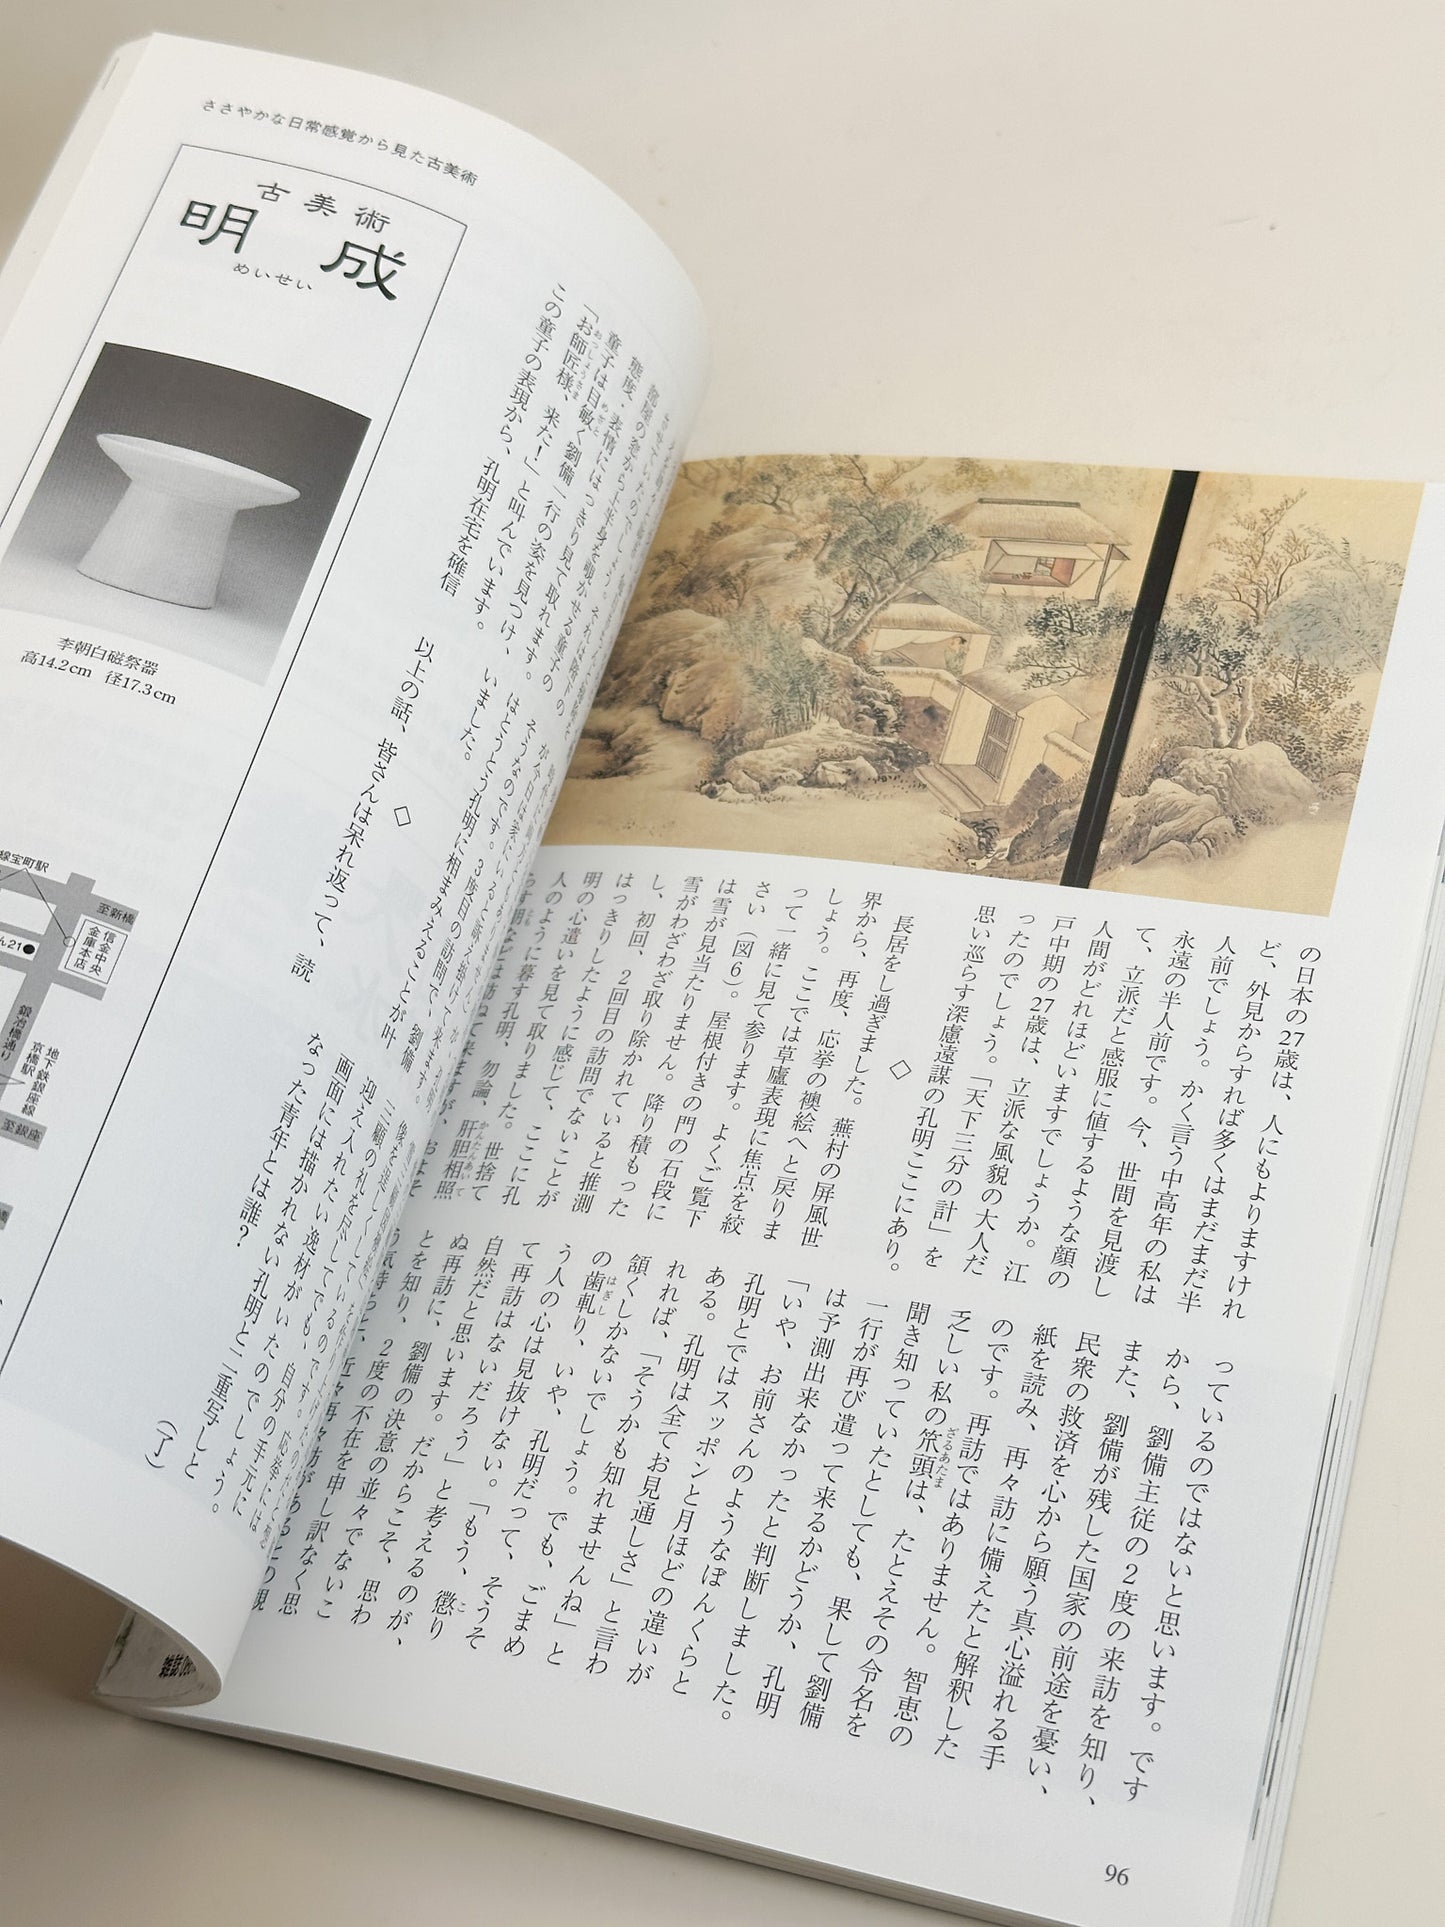 の日本の27歳は、人にもよりますけれ
ど、外見からすれば多くはまだまだ半
人前でしょう。かく言う中高年の私は
永遠の半人前です。今、世間を見渡し
て、立派だと感服に値するような顔の
人間がどれほどいますでしょうか。江
戸中期の27歳は、立派な風貌の大人だ
ったのでしょう。「天下三分の計」を
思い巡らす深慮遠謀の孔明ここにあり。
◇
長居をし過ぎました。蕪村の屏風世
界から、再度、応挙の襖絵へと戻りま
しょう。ここでは草廬表現に焦点を絞
って一緒に見て参ります。よくご覧下
さい(図6)。屋根付きの門の石段に
は雪が見当たりません。降り積もった
雪がわざわざ取り除かれていると推測
し、初回、2回目の訪問でないことが
はっきりしたように感じて、ここに孔
明の心遣いを見て取りました。世捨て
人のように暮す孔明、勿論、肝胆相照
かんたんあいて
っているのではないと思います。です
から、劉備主従の2度の来訪を知り、
また、劉備が残した国家の前途を憂い、
民衆の救済を心から願う真心溢れる手
紙を読み、再々訪に備えたと解釈した
のです。再訪ではありません。智恵の
乏しい私の笊頭は、たとえその令名を
ざるあたま
聞き知っていたとしても、果して劉備
一行が再び遣って来るかどうか、孔明
は予測出来なかったと判断しました。
「いや、お前さんのようなぼんくらと
孔明とではスッポンと月ほどの違いが
ある。孔明は全てお見通しさ」と言わ
れれば、「そうかも知れませんね」と
頷くしかないでしょう。でも、ごまめ
の歯軋り、いや、孔明だって、そうそ
はぎし
う人の心は見抜けない。「もう、懲り
こ
て再訪はないだろう」と考えるのが、
自然だと思います。だからこそ、思わ
ぬ再訪に、劉備の決意の並々でないこ
とを知り、2度の不在を申し訳なく思
96
ささやかな日常感覚から見た古美術
態度・表情にはっきり見て取れます。
童子は目敏く劉備一行の姿を見つけ、
めざと
「お師匠様、来た!」と叫んでいます。
おっしょうさま
この童子の表現から、孔明在宅を確信
いました。
◇
以上の話、皆さんは呆れ返って、読
迎え入れたい逸材がいたのでしょう。
画面には描かれない孔明と二重写しと
なった青年とは誰?
(了)
古美術
明成
めいせい
李朝白磁祭器
高14.2cm 径17.3cm
線宝町駅
至新橋
信金中央
金庫本店
ん21
鍛冶橋通り
地下鉄銀座線
京橋駅
至銀座